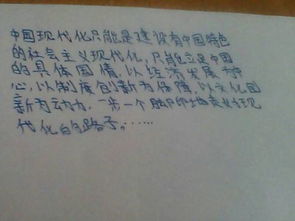 中国现代化只能是建设有中国特色
的社会主义现代化,只能立足中国
的具体国情,以经济发展为中
心,以制度创新为保障,以文化创
新为动力,一步一个脚印地走
代化的路子。……